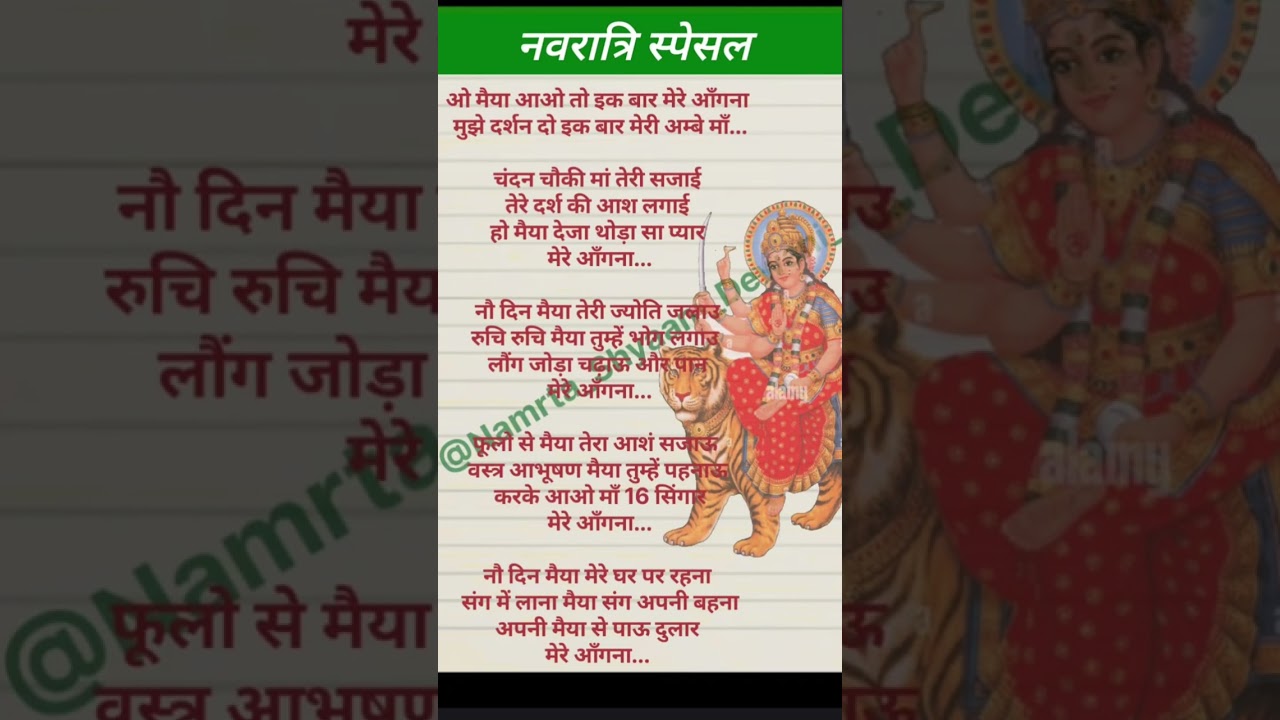 नवरात्रि स्पेसल
ओ मैया आओ तो इक बार मेरे आँगना
मुझे दर्शन दो इक बार मेरी अम्बे माँ...
चंदन चौकी मां तेरी सजाई
तेरे दर्श की आश लगाई
हो मैया देजा थोड़ा सा प्यार
मेरे आँगना...
नौ दिन मैया तेरी ज्योति जलाउ
रुचि रुचि मैया तुम्हें भोग लगाउ
लौंग जोड़ा चढ़ाऊ और पान
मेरे आँगना...
फूलो से मैया तेरा आशं सजाऊ
वस्त्र आभूषण मैया तुम्हें पहनाऊ
करके आओ माँ 16 सिंगार
मेरे आँगना...
नौ दिन मैया मेरे घर पर रहना
संग में लाना मैया संग अपनी बहना
अपनी मैया से पाऊ दुलार
मेरे आँगना...
alamy
मेरे
नौ दिन मैया
रुचि रुचि मैय
लौंग जोड़ा
मेरे
फूलो से मैया
वस्त्र आभूषण
alamy